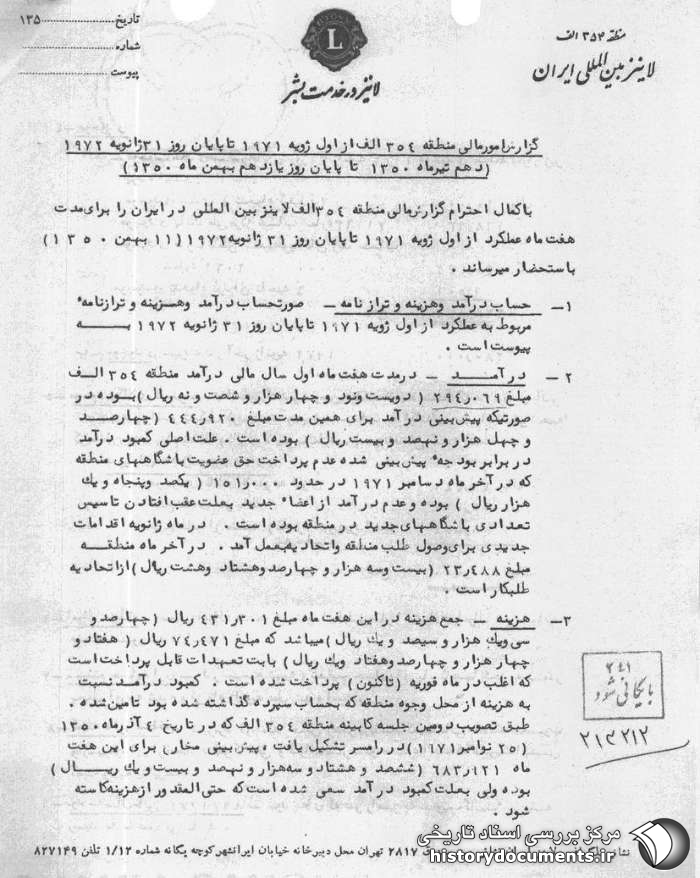 منطقه ۳۵۴ الف
لاینز بین المللی ایران
L
لاینز در خدمت بشر
تاریخ ۱۳۵
شماره
پیوست
گزارش امور مالی منطقه ۳۵۴ الف از اول ژویه ۱۹۷۱ تا پایان روز ۳۱ ژانویه ۱۹۷۲
(دهم تیرماه ۱۳۵۰ تا پایان روز یازدهم بهمن ماه ۱۳۵۰)
با کمال احترام گزارش مالی منطقه ۳۵۴ الف لاینز بین المللی در ایران را برای مدت
هفت ماه عملکرد از اول ژویه ۱۹۷۱ تا پایان روز ۳۱ ژانویه ۱۹۷۲ (۱۱ بهمن ۱۳۵۰)
باستحضار میرساند .
۱ــ حساب درآمد وهزینه و تراز نامه ــ صورتحساب درآمد وهسزینه و ترازنامه ٔ
مربوط به عملکرد از اول ژویه ۱۹۷۱ تا پایان روز ۳۱ ژانویه ۱۹۷۲ بــه
پیوست است .
۲ ــ درآمــد ــ درمدت هفت ماه اول سال مالی درآمد منطقه ۳۵٤ الــف
مبلغ ۲۹٤٫۰٦۹ ( دویست ونود و چهار هزار و شصت و نه ریال ) بــوده در
صورتیکه پیش بینی درآمد برای همین مدت مبلغ ٤٤٤٫۹۲۰ (چهارصــد
و چهل هزار و نهصد و بیست ریال ) بوده است . علت اصلی کمبود درآمد
در برابر بودجه ٔ پیش بینی شده عدم پرداخت حق عضویت باشگاههای منطقه
که در آخر ماه دسامبر ۱۹۷۱ در حدود ۱۵۱٫۰۰۰ ( یکصد وپنجاه و یك
هزار ریال ) بوده و عدم درآمد از اعضا ٔ جدید بعلت عقب افتادن تاسیس
تعدادی باشگاههای جدید در منطقه بوده است . در ماه ژانویه اقدامات
جدیدی برای وصول طلب منطقه واتحادیه بعمل آمد . در آخر ماه منطقــه
مبلغ ۲۳٫٤۸۸ (بیست وسه هزار و چهارصد وهشتاد وهشت ریال ) از اتحادیه
طلبکار است .
۳ــ هزینه ــ جمع هزینه در این هفت ماه مبلغ ٤۳۱٫۳۰۱ ریال (چهارصد و
سی ویك هزار و سیصد و یك ریال ) میباشد که مبلغ ۷٤٫٤۷۱ ریال ( هفتاد و
چهار هزار و چهارصد وهفتاد ویك ریال ) بابت تعهدات قابل پرداخت است
که اغلب در ماه فوریه (تاکنون ) پرداخت شده است . کمبود درآمد نسبت
به هزینه از محل وجوه منطقه که بحساب سپرده گذاشته شده بود تامین شده .
طبق تصویب دومین جلسه کابینه منطقه ۳۵٤ الف که در تاریخ ٤ آذرماه ۱۳۵۰
(۲۵ نوامبر ۱۹۷۱) در رامسر تشکیل یافت ، پیش بینی مخارج برای این هفت
ماه ٦۸۳٫۹۲۱ (ششصد و هشتاد و سه هزار و نهصد و بیست و یك ریــال )
بوده ولی بعلت کمبود درآمد سعی شده است که حتی المقدور از هزینه کاسته
شود .
۳٤۱
بایگانی شود
۲۱۳۲۱۲
۲۸۱۷ تهران محل دبیرخانه خیابان ایرانشهر کوچه یگانه شماره ۱/۱۲ تلفن ۸۲۷۱۴۹
مرکز بررسی اسناد تاریخی
historydocuments.ir